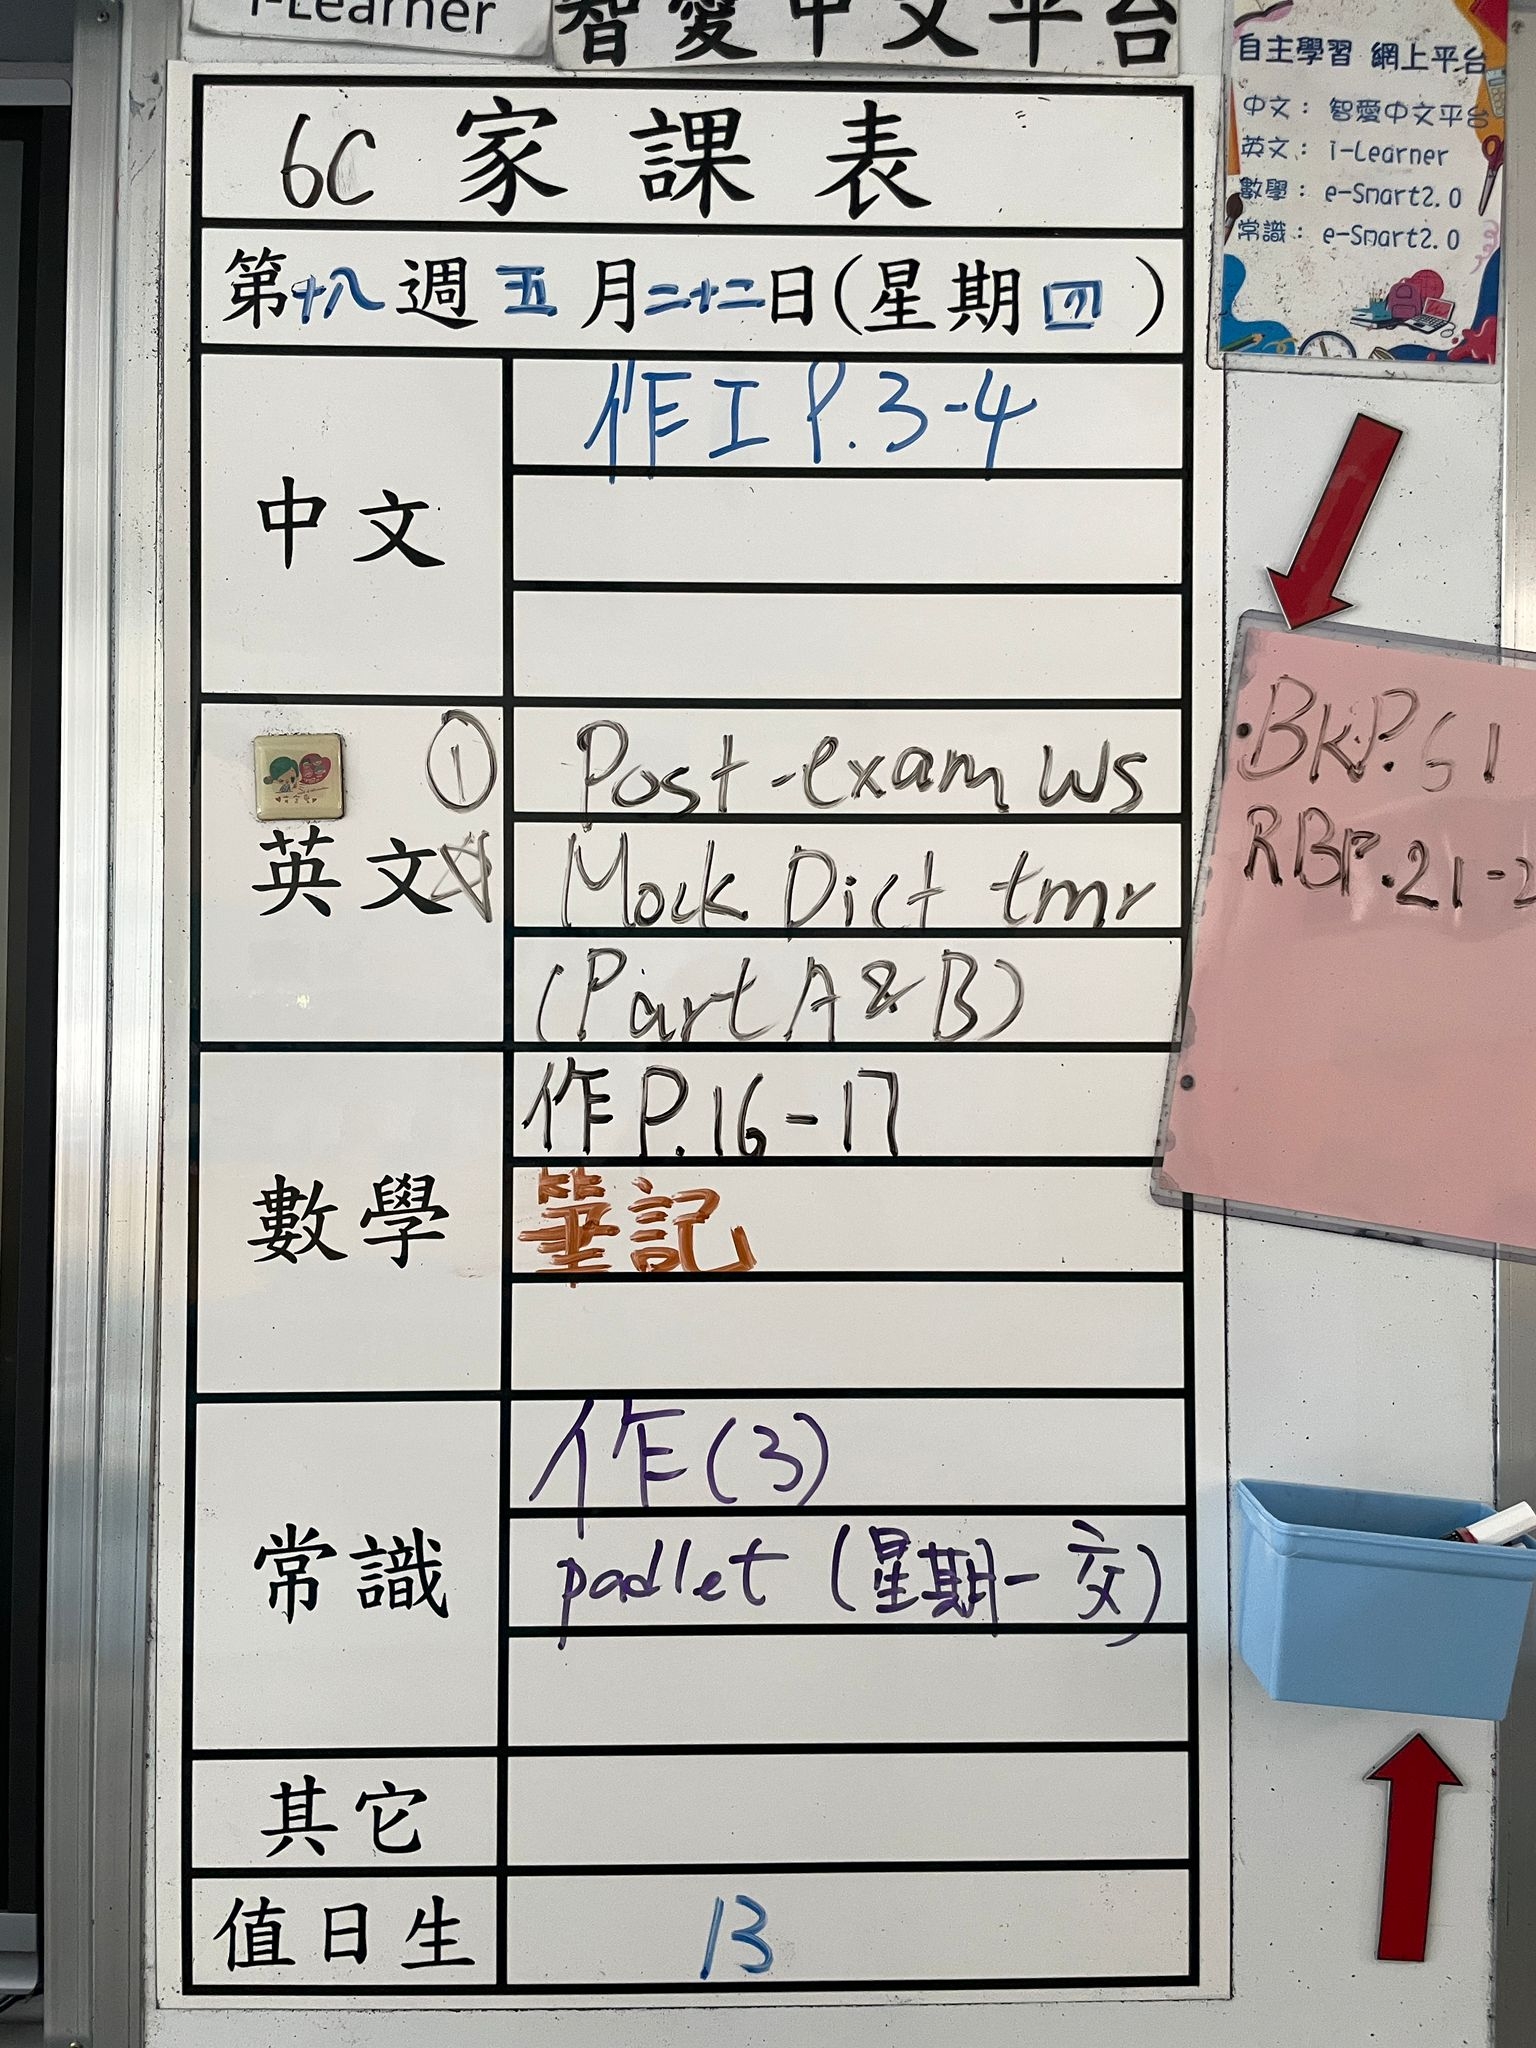 i-Learner
智愛中文平台
自主學習 網上平台
中文： 智愛中文平台
英文： i-Learner
數學： e-Smart2.0
常識： e-Smart2.0
6C 家課表
第十八週 五月二十二日(星期四)
中文
作工 P.3-4
英文
① Post-exam WS
☆ Mock Dict tmr
(Part A & B)
數學
作 P.16-17
筆記
常識
作(3)
padlet (星期一交)
其它
值日生
13
BKP.61
RBP.21-2